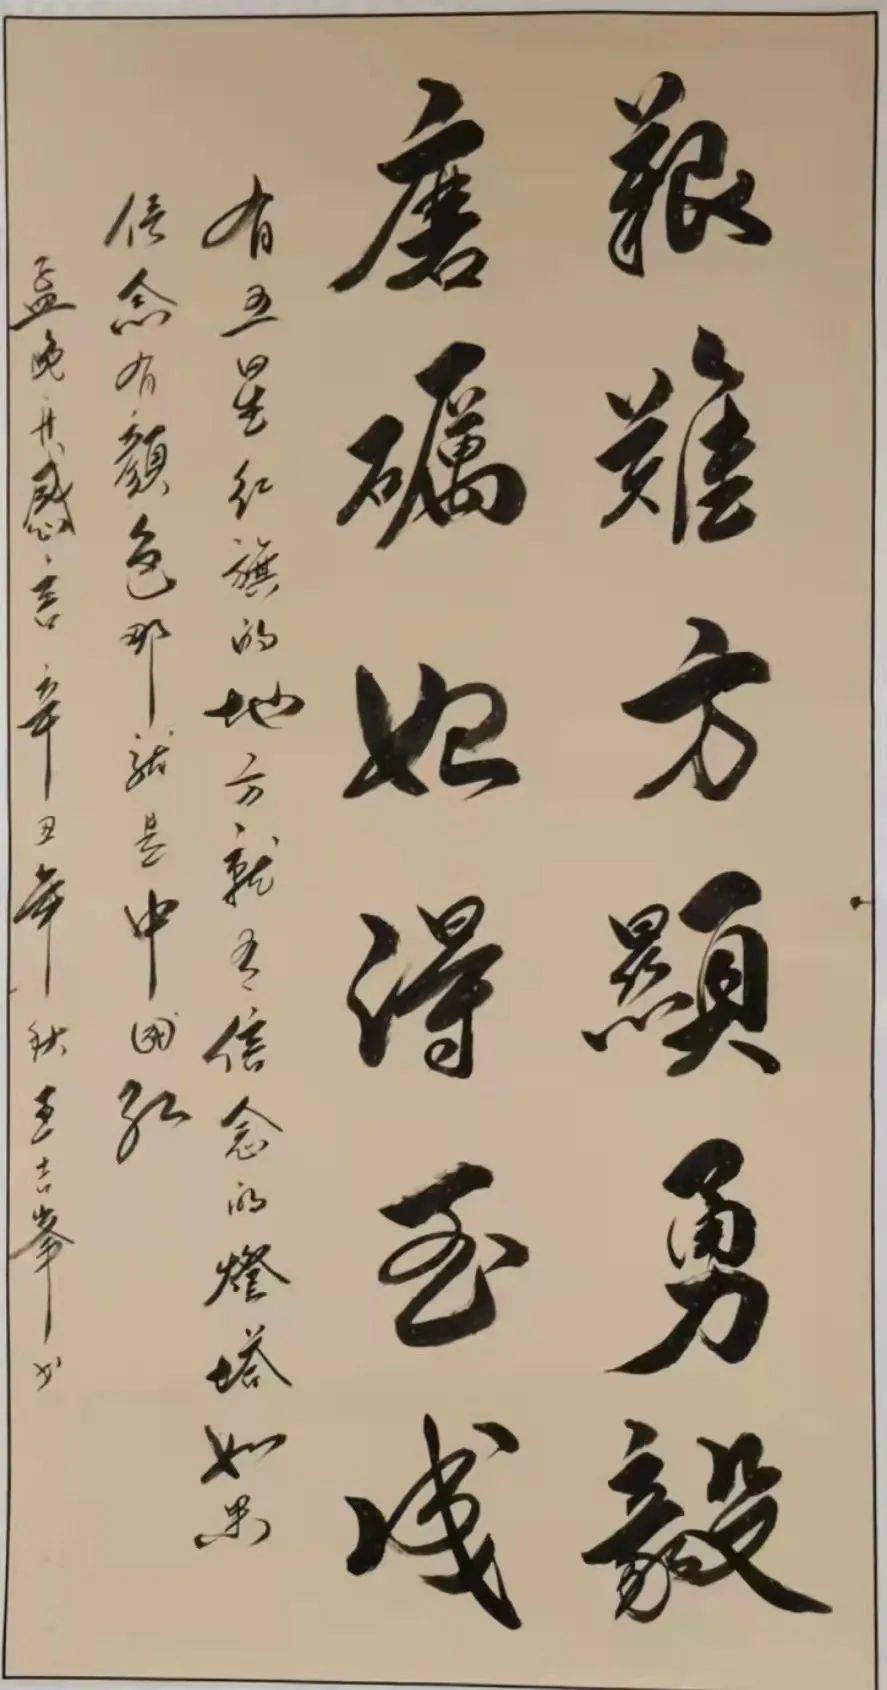 艱難方顯勇毅
磨礪始得玉成
有五星红旗的地方就有信念的燈塔如果
信念有顏色那就是中国红
孟晚舟感言辛丑年秋王吉峯书